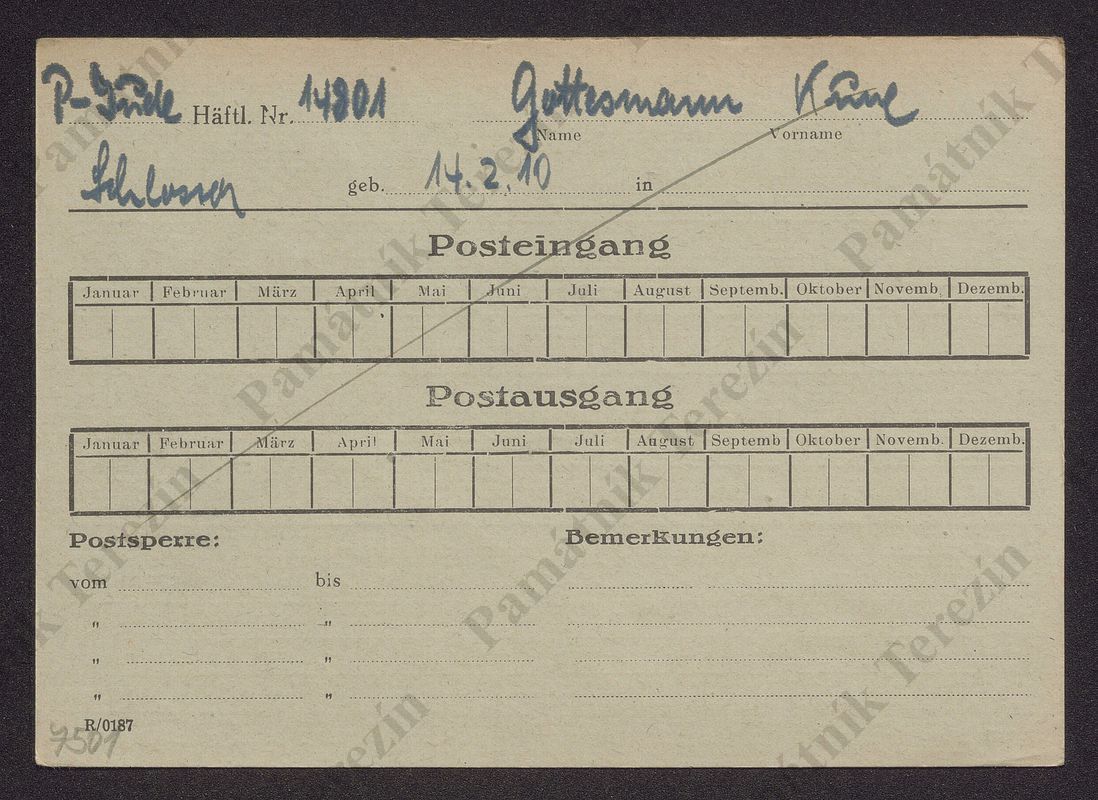 P-Jude Häftl. Nr. 14801 Gottesmann
Name Vorname
Schlosser geb. 14.2.10 in
Posteingang
Januar Februar März April Mai Juni Juli August Septemb. Oktober Novemb. Dezemb.
Postausgang
Januar Februar März April Mai Juni Juli August Septemb Oktober Novemb. Dezemb.
Postsperre: Bemerkungen:
vom bis
" "
" "
" "
R/0187
7501
Památník Terezín